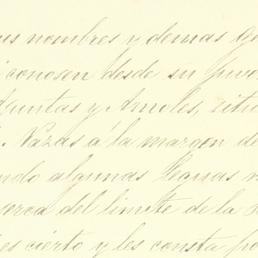 us nombres y demas ge
conosen desde su juve
Quintas y Amoles, situ
Nazas á la margen de
ndo algunas leguas
erca del limite de la
es cierto y les consta po